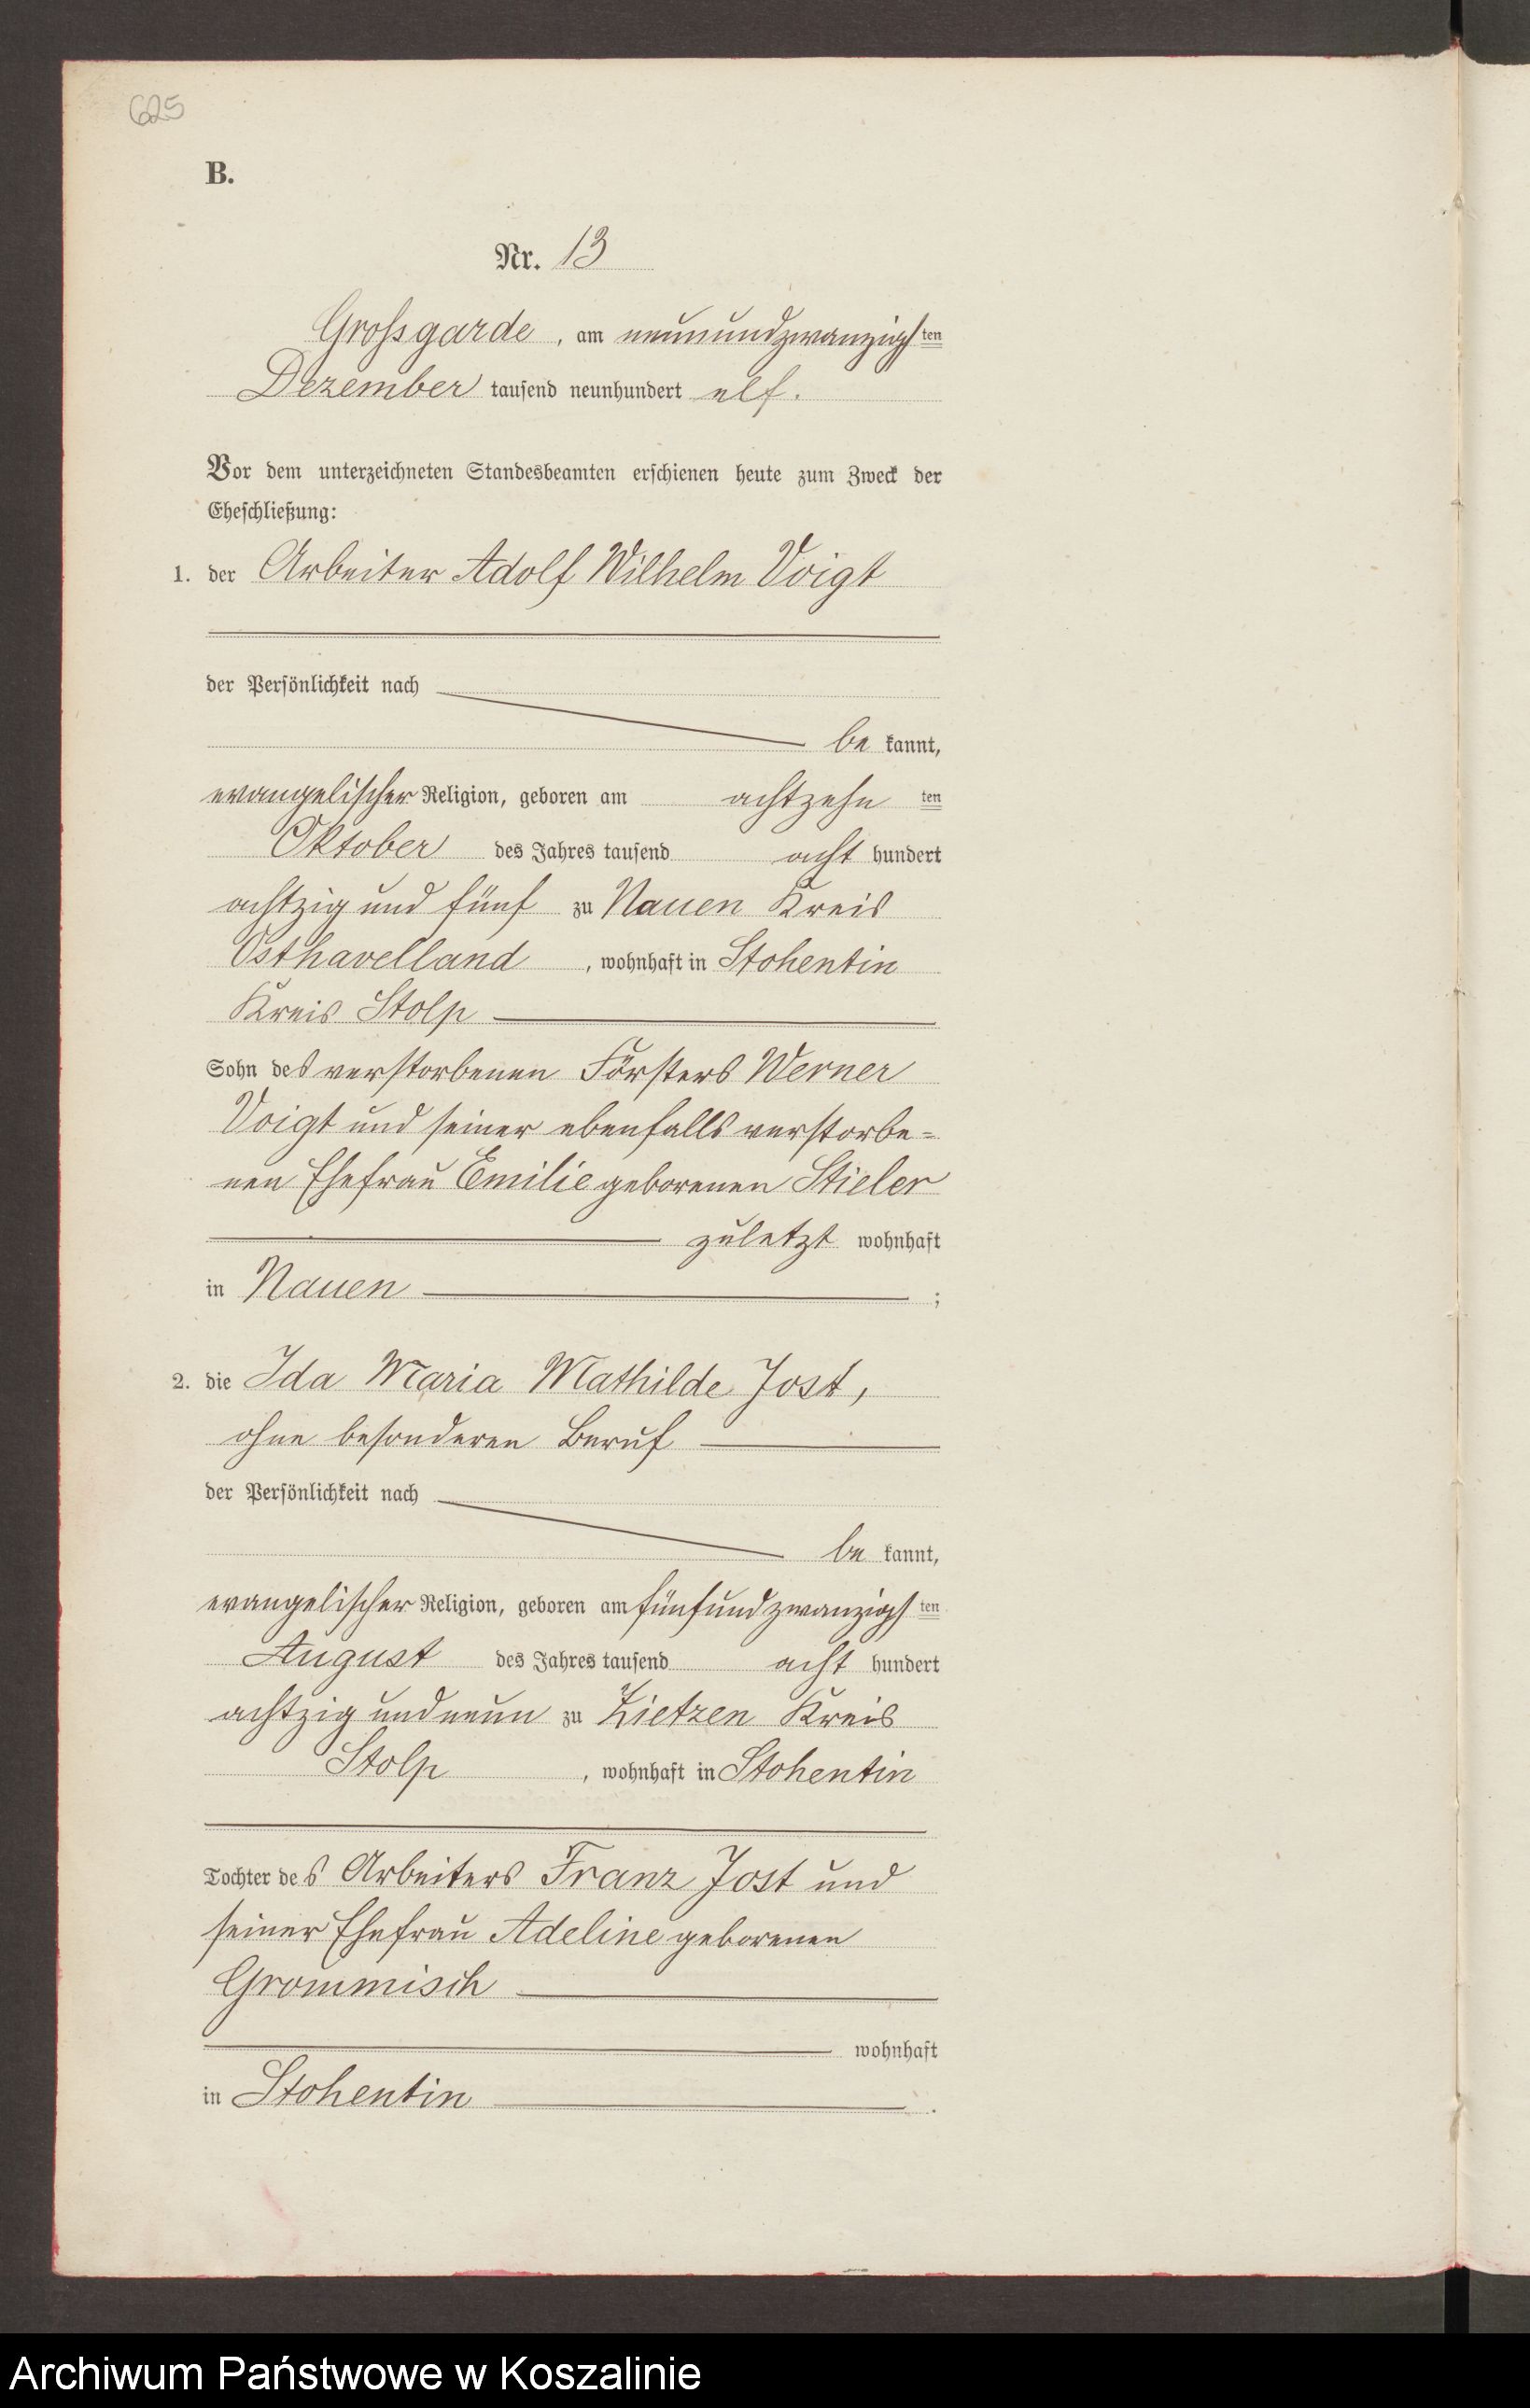 625
B.
Nr. 13
Grossgarde, am neunundzwanzigsten
Dezember tausend neunhundert elf.
Vor dem unterzeichneten Standesbeamten erschienen heute zum Zweck der
Eheschließung:
1. der Arbeiter Adolf Wilhelm Voigt
der Persönlichkeit nach
be kannt,
evangelischer Religion, geboren am achtzehn ten
Oktober des Jahres tausend acht hundert
achtzig und fünf zu Nauen Kreis
Osthavelland, wohnhaft in Stohentin
Kreis Stolp
Sohn des verstorbenen Försters Werner
Voigt und seiner ebenfalls verstorbe=
nen Ehefrau Emilie geborenen Stieler
zuletzt wohnhaft
in Nauen ;
2. die Ida Maria Mathilde Jost,
ohne besonderen Beruf
der Persönlichkeit nach
be kannt,
evangelischer Religion, geboren am fünfundzwanzigsten
August des Jahres tausend acht hundert
achtzig und neun zu Zietzen Kreis
Stolp, wohnhaft in Stohentin
Tochter des Arbeiters Franz Jost und
seiner Ehefrau Adeline geborenen
Grommisch
wohnhaft
in Stohentin .
Archiwum Państwowe w Koszalinie